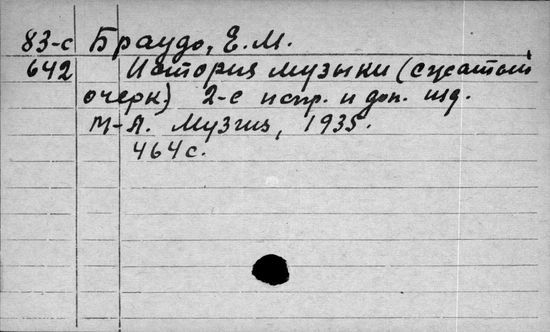 83-с Браудо, Е.М.
642 История музыки (сжатый
очерк) 2-е испр. и доп. изд.
М-Л. Музгиз, 1935.
464с.